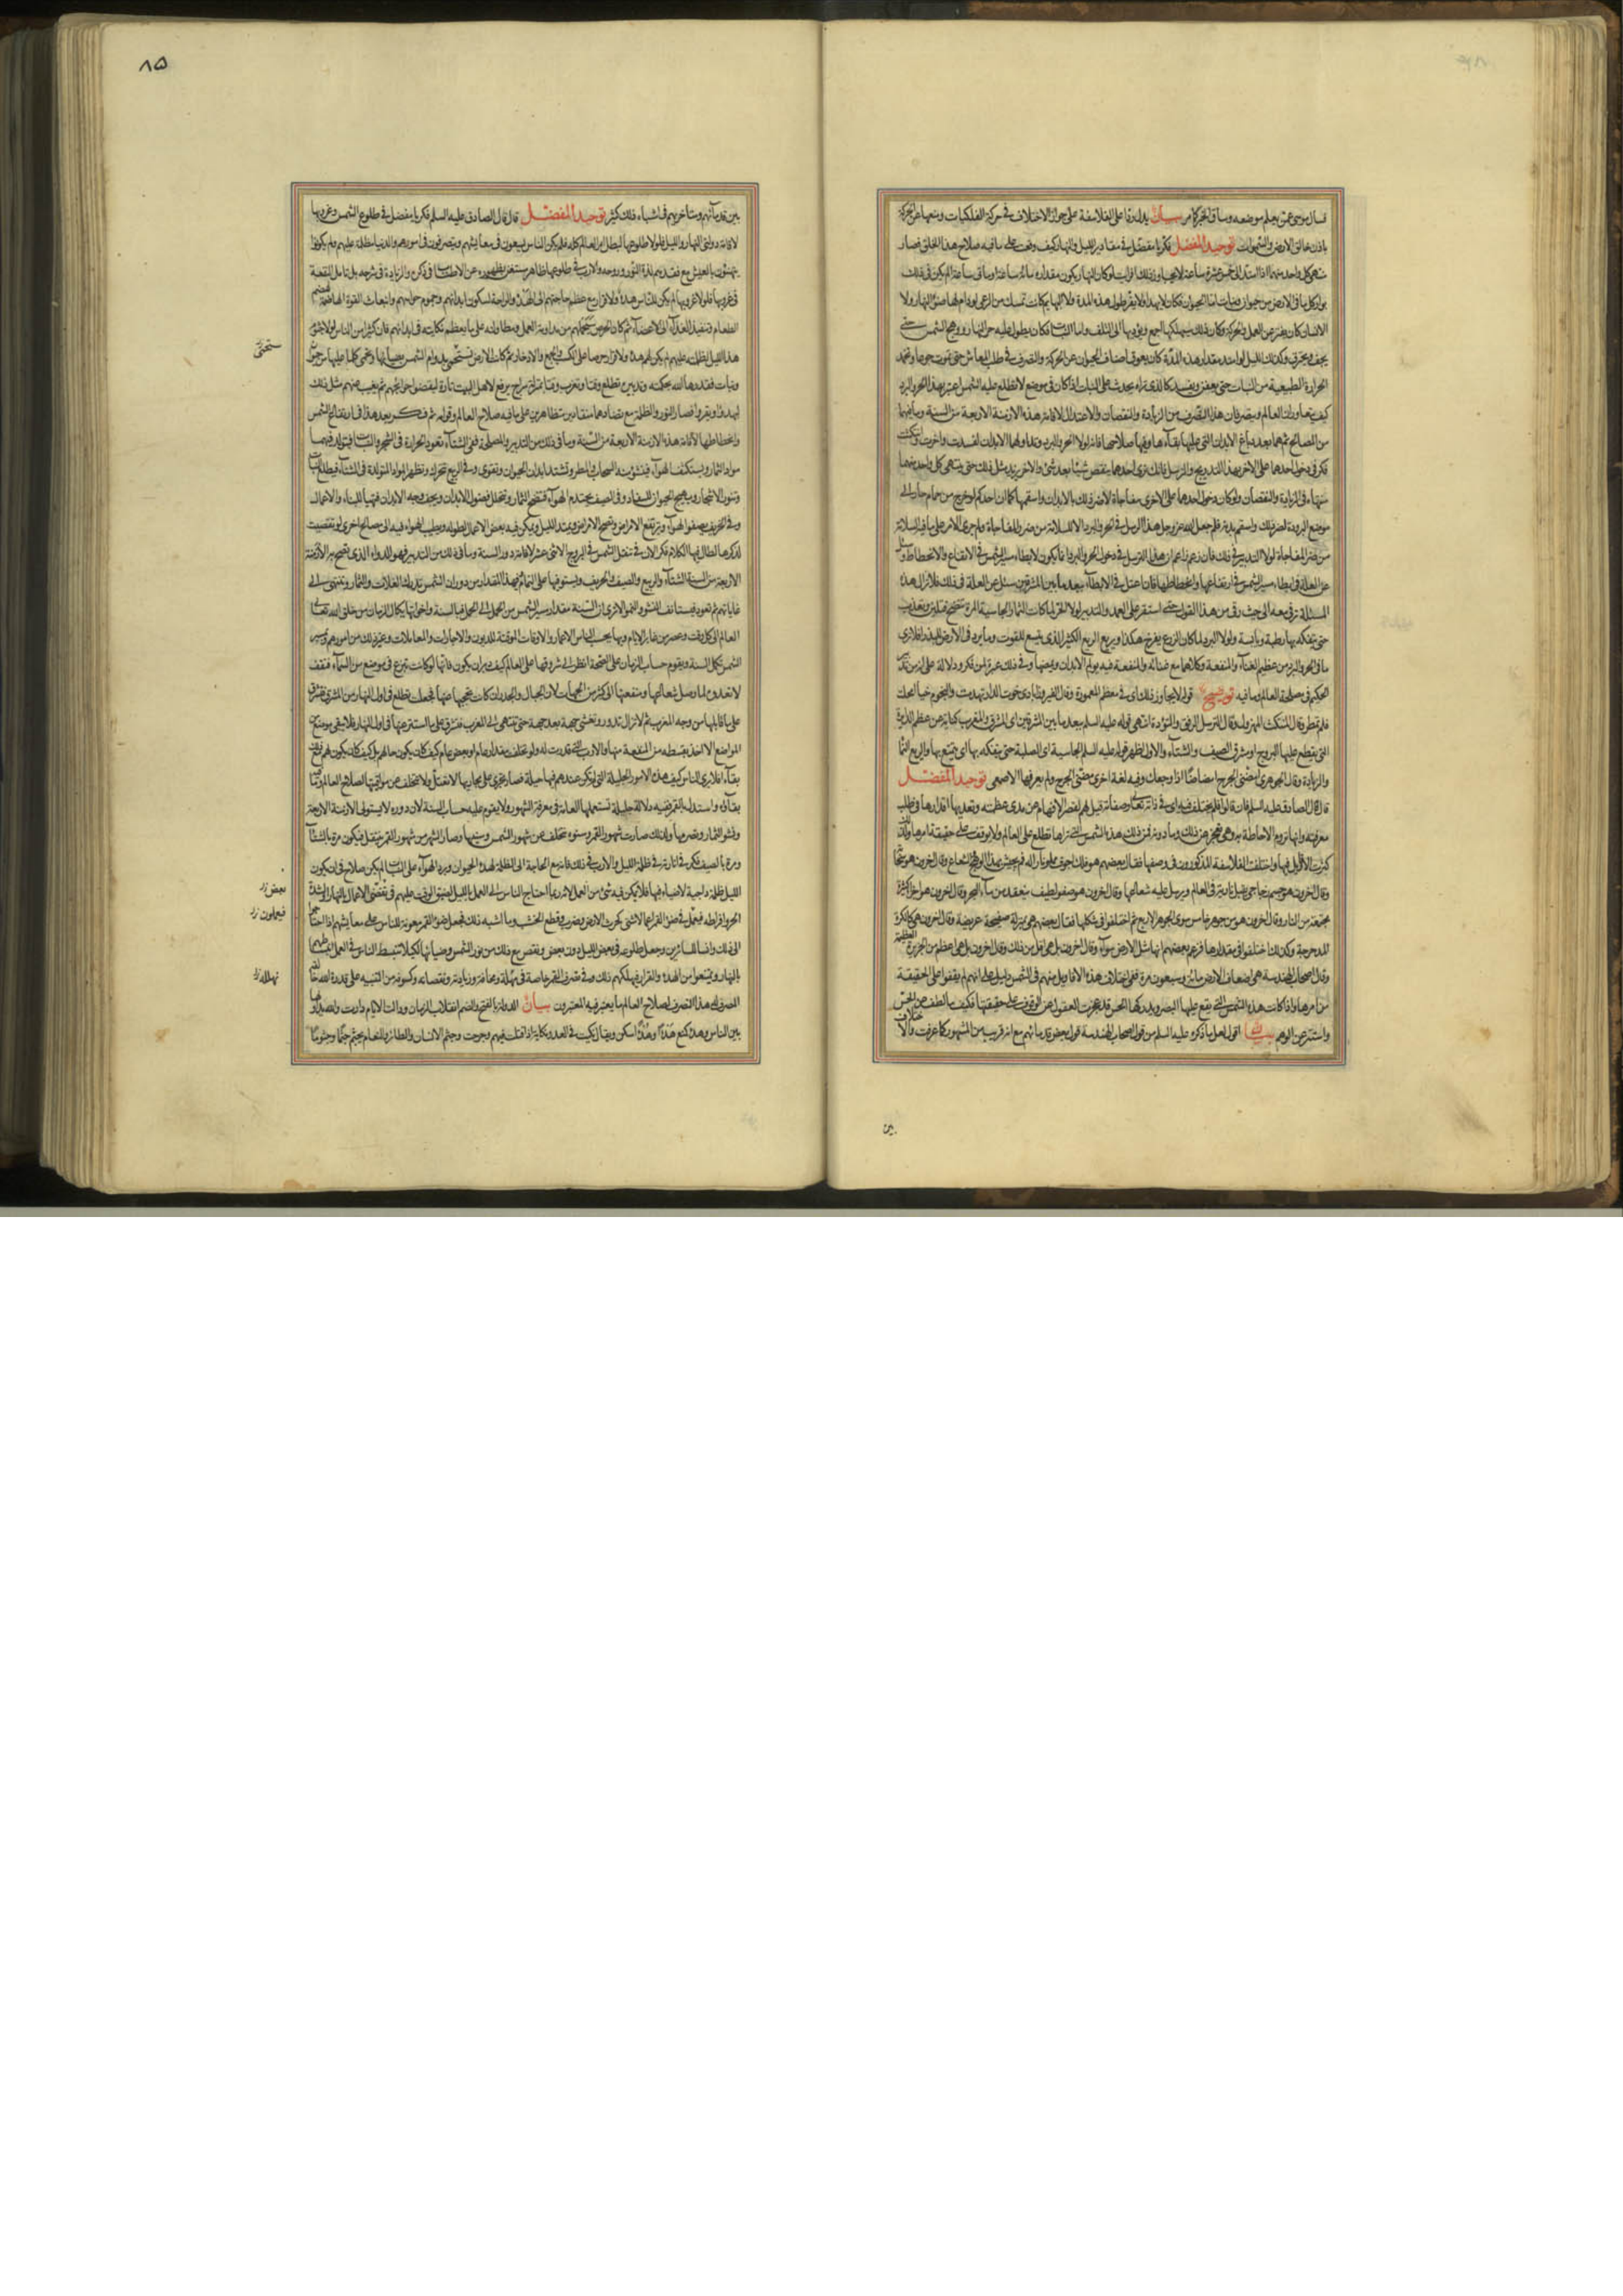 فسال موسى عمن يعلم موضعه وساق الخبر كما مر بيان يدل ردا على الفلاسفة على جواز الاختلاف في حركة الفلكيات ومنعها عن الحركة
باذن خالق الارض والسموات توحيد المفضل فكر يا مفضل في مقادير الليل والنهار كيف وقعت على ما فيه صلاح هذا الخلق فصار
منتهى كل واحد منهما اذا امتد الى خمس عشرة ساعة لا يجاوز ذلك افرايت لو كان النهار يكون مقداره مائة ساعة او مائتي ساعة الم يكن في ذلك
بوار كل ما في الارض من حيوان ونبات اما الحيوان فكان لا يهدا ولا يقر طول هذه المدة ولا البهايم كانت تمسك من الرعي لو دام لها ضوء النهار ولا
الانسان كان يفتر عن العمل والحركة وكان ذلك سيهلكها اجمع ويؤديها الى التلف واما النبات فكان يطول عليه حر النهار ووهج الشمس حتى
يجف ويحترق وكذلك الليل لو امتد مقدار هذه المدة كان يعوق اصناف الحيوان عن الحركة والتصرف في طلب المعاش حتى تموت جوعا وتخمد
الحرارة الطبيعية من النبات حتى يعفن ويفسد كالذي تراه يحدث على النبات اذا كان في موضع لا تطلع عليه الشمس اعتبر بهذا الحر والبرد
كيف يتعاوران العالم ويتصرفان هذا التصرف من الزيادة والنقصان والاعتدال لاقامة هذه الازمنة الاربعة من السنة وما فيهما
من المصالح ثم هما بعد دباغ الابدان التي عليها بقاؤها وفيها صلاحها فانه لولا الحر والبرد وتداولهما الابدان لفسدت واخوت وانتكثت
فكر في دخول احدهما على الاخر بهذا التدريج والترسل فانك ترى احدهما ينقص شيئا بعد شيء والاخر يزيد مثل ذلك حتى ينتهي كل واحد منهما
منتهاه في الزيادة والنقصان ولو كان دخول احدهما على الاخرى مفاجاة لاضر ذلك بالابدان واسقمها كما ان احدكم لو خرج من حمام حار الى
موضع البرودة لضره ذلك واسقم بدنه فلم جعل الله عز وجل هذا الترسل في الحر والبرد الا للسلامة من ضرر المفاجاة ولم جرى الامر على ما فيه السلامة
من ضر المفاجاة لولا التدبير في ذلك فان زعم زاعم ان هذا الترسل في دخول الحر والبرد انما يكون لابطاء مسير الشمس في الارتفاع والانحطاط سئل
عن العلة في ابطاء مسير الشمس في ارتفاعها وانحطاطها فان اعتل في الابطاء ببعد ما بين المشرقين سئل عن العلة في ذلك فلا تزال هذه
المسئلة ترقى معه الى حيث رقى من هذا القول حتى استقر على العمد والتدبير لولا الحر لما كانت الثمار الجاسية المرة تنضج فتلين وتعذب
حتى يتفكه بها رطبة ويابسة ولولا البرد لما كان الزرع يفرخ هكذا ويريع الريع الكثير الذي يتسع للقوت وما يرد في الارض للبذر افلا ترى
ما في الحر والبرد من عظيم الغناء والمنفعة وكلاهما مع غنائه والمنفعة فيه يولم الابدان ويمضها وفي ذلك عبرة لمن فكر ودلالة على انه من تدبير
الحكيم في مصلحة العالم وما فيه توضيح قوله لا يجاوز ذلك اي في معظم المعمورة وقال الفيروزابادي خوت الدار تهدمت والنجوم خيا امحلت
فلم تمطر وقال المنتكث المهزول وقال الترسل الرفق والتؤدة انتهى قوله عليه السلم ببعد ما بين المشرقين اي المشرق والمغرب كناية عن عظم الدايرة
التي يقطع عليها البروج او مشرقي الصيف والشتاء والاول اظهر قوله عليه السلم الجاسية اي الصلبة حتى يتفكه بها اي يتمتع بها والريع النماء
والزيادة وقال الجوهري امضني الجرح امضاضا اذا وجعك وفيه لغة اخرى مضني الجرح ولم يعرفها الاصمعي توحيد المفضل
قال قال الصادق عليه السلم فان قالوا فلم يختلف فيه اي في ذاته تعالى وصفاته قيل لهم لقصر الافهام عن مدى عظمته وتعديها اقدارها في طلب
معرفته وانها تروم الاحاطة به وهي تعجز عن ذلك وما دونه فمن ذلك هذه الشمس التي تراها تطلع على العالم ولا يوقف على حقيقة امرها ولذلك
كثرت الاقاويل فيها واختلفت الفلاسفة المذكورون في وصفها فقال بعضهم هو فلك اجوف مملو نارا له فم يجيش بهذا الوهج والشعاع وقال اخرون هو سحابة
وقال اخرون هو جسم زجاجي يقبل نارية في العالم ويرسل عليه شعاعها وقال اخرون هو صفو لطيف ينعقد من ماء البحر وقال اخرون هو اجزاء كثيرة
مجتمعة من النار وقال اخرون هو من جوهر خامس سوى الجواهر الاربع ثم اختلفوا في شكلها فقال بعضهم هي بمنزلة صفيحة عريضة وقال اخرون هي كالكرة
المدحرجة وكذلك اختلفوا في مقدارها فزعم بعضهم انها مثل الارض سواء وقال اخرون بل هي اقل من ذلك وقال اخرون بل هي اعظم من الجزيرة العظيمة
وقال اصحاب الهندسة هي اضعاف الارض مائة وسبعون مرة ففي اختلاف هذه الاقاويل منهم في الشمس دليل على انهم لم يقفوا على الحقيقة
من امرها واذا كانت هذه الشمس التي يقع عليها البصر ويدركها الحس قد عجزت العقول عن الوقوف على حقيقتها فكيف بما لطف عن الحس
واستتر عن الوهم بيان اقول لعل ما ذكره عليه السلم من قول اصحاب الهندسة قول بعض قدمائهم مع انه قريب من المشهور كما عرفت والاختلاف
بين
٨٥
بين قدمائهم ومتاخريهم في اشباه ذلك كثير توحيد المفضل قال قال الصادق عليه السلم فكر يا مفضل في طلوع الشمس وغروبها
لاقامة دولتي النهار والليل فلولا طلوعها لبطل امر العالم كله فلم يكن الناس يسعون في معايشهم ويتصرفون في امورهم والدنيا مظلمة عليهم ولم يكونوا
يتهنئون بالعيش مع فقدهم لذة النور وروحه والارب في طلوعها ظاهر مستغن بظهوره عن الاطناب في ذكره والزيادة في شرحه بل تامل المنفعة
في غروبها فلولا غروبها لم يكن للناس هدء ولا قرار مع عظم حاجتهم الى الهدء والراحة لسكون ابدانهم وجموم حواسهم وانبعاث القوة الهاضمة لهضم
الطعام وتنفيذ الغذاء الى الاعضاء ثم كان الحرص سيحملهم من مداومة العمل ومطاولته على ما يعظم نكايته في ابدانهم فان كثيرا من الناس لولا جثوم
هذا الليل بظلمته عليهم لم يكن لهم هدء ولا قرار حرصا على الكسب والجمع والادخار ثم كانت الارض تستحمى بدوام الشمس بضيائها وتحمي كلما عليها من حيوان
ونبات فقدرها الله بحكمته وتدبيره تطلع وقتا وتغرب وقتا بمنزلة سراج يرفع لاهل البيت تارة ليقضوا حوائجهم ثم يغيب عنهم مثل ذلك
ليهدؤا ويقروا فصار النور والظلمة مع تضادهما منقادين متظاهرين على ما فيه صلاح العالم وقوامه ثم فكر بعد هذا في ارتفاع الشمس
وانحطاطها لاقامة هذه الازمنة الاربعة من السنة وما في ذلك من التدبير والمصلحة ففي الشتاء تعود الحرارة في الشجر والنبات فيتولد فيهما
مواد الثمار ويستكثف الهواء فينشؤ منه السحاب والمطر وتشتد ابدان الحيوان وتقوى وفي الربيع تتحرك وتظهر المواد المتولدة في الشتاء فيطلع النبات
وتنور الاشجار ويهيج الحيوان للسفاد وفي الصيف يحتدم الهواء فتنضج الثمار وتتحلل فضول الابدان ويجف وجه الارض فتهيأ للبناء والاعمال
وفي الخريف يصفو الهواء وترتفع الامراض وتصح الابدان ويمتد الليل ويمكن فيه بعض الاعمال لطوله ويطيب الهواء فيه الى مصالح اخرى لو تقصيت
لذكرها لطال فيها الكلام فكر الان في تنقل الشمس في البروج الاثني عشر لاقامة دور السنة وما في ذلك من التدبير فهو الدور الذي تصح به الازمنة
الاربعة من السنة الشتاء والربيع والصيف والخريف ويستوفيها على التمام وفي هذا المقدار من دوران الشمس تدرك الغلات والثمار وتنتهي الى
غاياتهم ثم تعود فيستانف النشو والنمو الا ترى ان السنة مقدار مسير الشمس من الحمل الى الحمل فبالسنة واخواتها يكال الزمان من خلق الله تعالى
العالم الى كل وقت وعصر من غابر الايام وبها يحسب الناس الاعمار والاوقات الموقتة للديون والاجارات والمعاملات وغير ذلك من امورهم وبمسير
الشمس تكمل السنة ويقوم حساب الزمان على الصحة انظر الى شروقها على العالم كيف دبر ان يكون فانها لو كانت تبزغ في موضع من السماء فتقف
لا تعدوه لما وصل شعاعها ومنفعتها الى كثير من الجهات لان الجبال والجدران كانت تحجبها عنها فجعلت تطلع في اول النهار من المشرق فتشرق
على ما قابلها من وجه المغرب ثم لا تزال تدور وتغشى جهة بعد جهة حتى تنتهي الى المغرب فتشرق على ما استتر عنها في اول النهار فلا يبقى موضع من
المواضع الا اخذ بقسطه من المنفعة منها والارب التي قدرت له ولو تخلفت مقدار عام او بعض عام كيف كان يكون حالهم بل كيف كان يكون لهم مع ذلك
بقاء افلا يرى الناس كيف هذه الامور الجليلة التي لم تكن عندهم فيها حيلة فصارت تجري على مجاريها لا تعتل ولا تتخلف عن مواقيتها لصلاح العالم وما فيه
بقاؤه واستدل بالقمر ففيه دلالة جليلة تستعملها العامة في معرفة الشهور ولا يقوم عليه حساب السنة لان دوره لا يستوفي الازمنة الاربعة
ونشو الثمار وتصرمها ولذلك صارت شهور القمر وسنوه تتخلف عن شهور الشمس وسنيها وصار الشهر من شهور القمر ينتقل فيكون مرة بالشتاء
ومرة بالصيف فكر في انارته في ظلمة الليل والارب في ذلك فانه مع الحاجة الى الظلمة لهدء الحيوان وبرد الهواء على النبات لم يكن صلاح في ان يكون
الليل ظلمة داجية لا ضياء فيها فلا يمكن فيه شيء من العمل لانه ربما احتاج الناس الى العمل بالليل لضيق الوقت عليهم في تقضي الاعمال بالنهار او لشدة
الحر وافراطه فيعمل في ضوء القمر اعمالا شتى كحرث الارض وضرب اللبن وقطع الخشب وما اشبه ذلك فجعل ضوء القمر معونة للناس على معايشهم اذا احتاجوا
الى ذلك وانسا للسائرين وجعل طلوعه في بعض الليل دون بعض ونقص مع ذلك من نور الشمس وضيائها لكيلا تنبسط الناس في العمل انبساطهم
بالنهار ويمتنعوا من الهدء والقرار فيهلكهم ذلك وفي تصرف القمر خاصة في مهله ومحاقه وزيادته ونقصانه وكسوفه من التنبيه على قدرة الله خالقه
المصرف له هذا التصرف لصلاح العالم ما يعتبر فيه المعتبرون بيان الدولة بالفتح والضم انقلاب الزمان ودالت الايام دارت والله يداولها
بين الناس وهدء كمنع هدءا وهدوءا سكن ويقال نكيت في العدو نكاية اذا قتلت فيهم وجرحت وجثم الانسان والطائر والنعام يجثم جثما وجثوما
ستحمى
بعض ز
فيعملون ز
تهلله ز